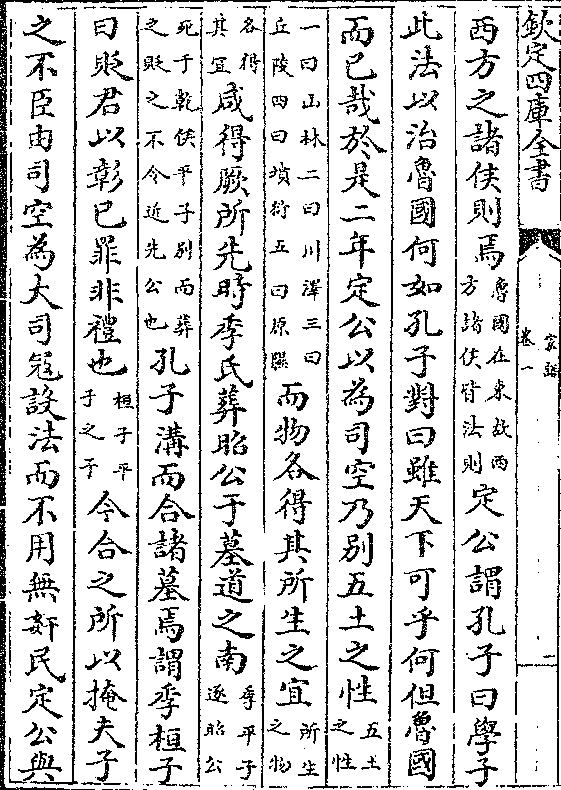 欽定四庫全書
家語
卷一
一
西方之諸侯則焉魯國在東故西方諸侯皆法則定公謂孔子曰學子
此法以治魯國何如孔子對曰雖天下可乎何但魯國
而已哉於是二年定公以為司空乃別五土之性五土之性
一曰山林二曰川澤三曰丘陵四曰墳衍五曰原隰而物各得其所生之宜所生之物
各得其宜咸得厥所先時季氏葬昭公于墓道之南季平子逐昭公
死于乾侯平子別而葬之貶之不令近先公也孔子溝而合諸墓焉謂季桓子
曰貶君以彰已罪非禮也桓子平子之子今合之所以掩夫子
之不臣由司空為大司冦設法而不用無奸民定公與